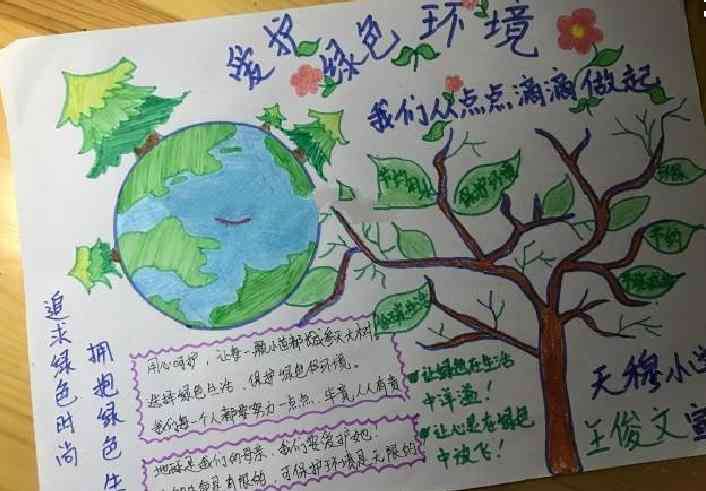 爱护绿色环境
我们从点点滴滴做起
节约用水
保护环境
节约
追求绿色时尚
拥抱绿色生
用心呵护，让每一颗小苗都长成参天大树！
选择绿色生活、保护绿色的环境。
我们每一个人都要努力一点点、毕竟人人有责
地球是我们的母亲、我们要爱护她！
有限的、可保护环境是无限的
让绿色在生活
中洋溢！
让心灵在绿色
中放飞！
天穆小
王俊文